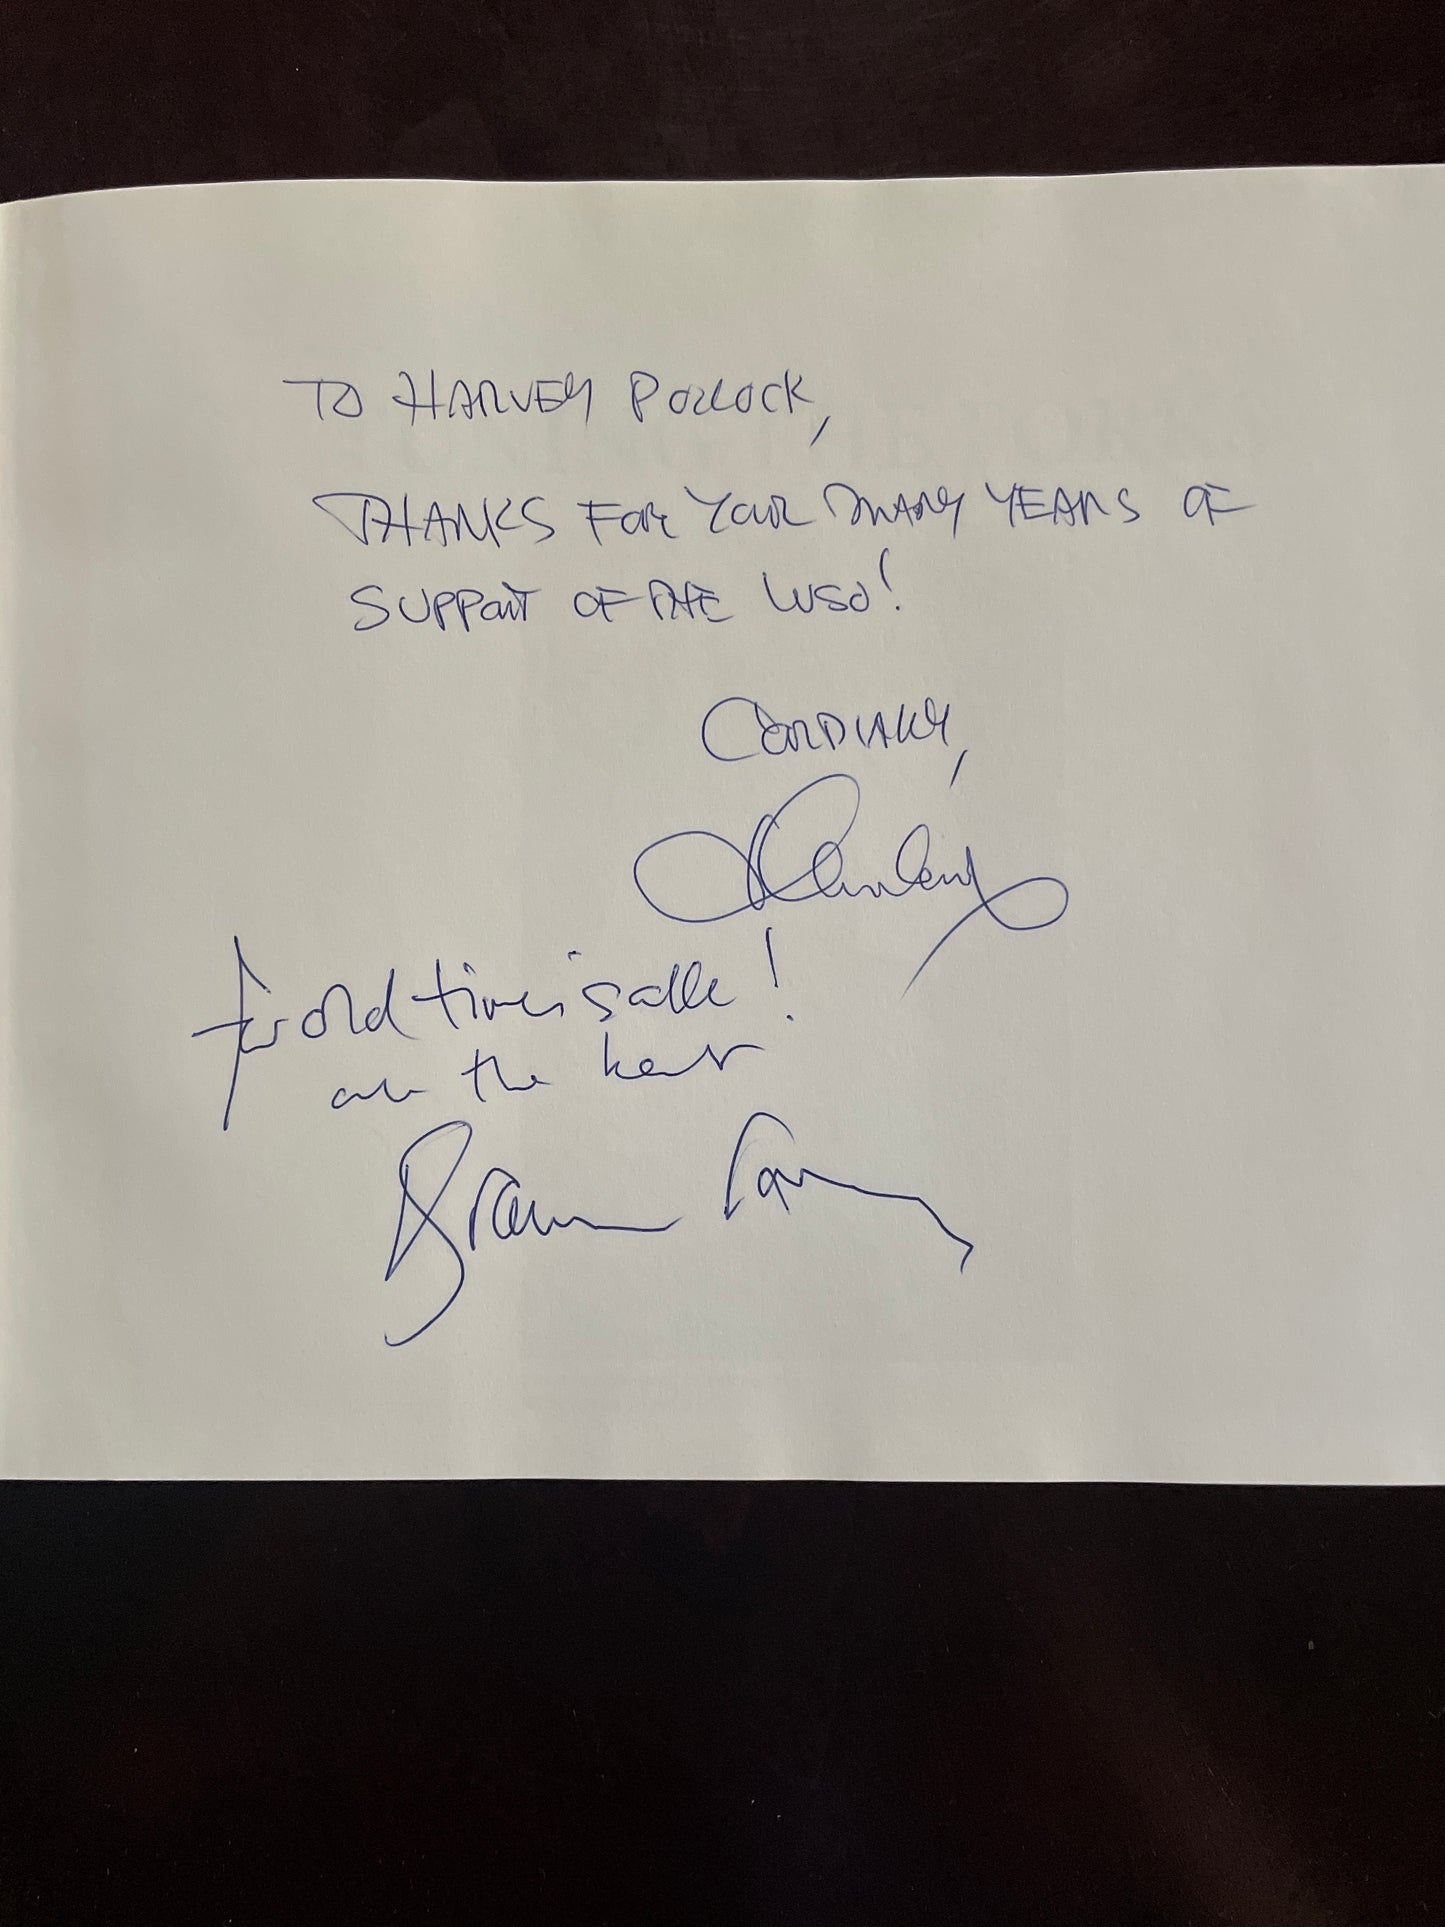 TO HARVEY POLLOCK,
THANKS FOR YOUR MANY YEARS OF
SUPPORT OF THE WSO!
CORDIALLY,
for old time's sake!
all the best
Bramwell Tovey